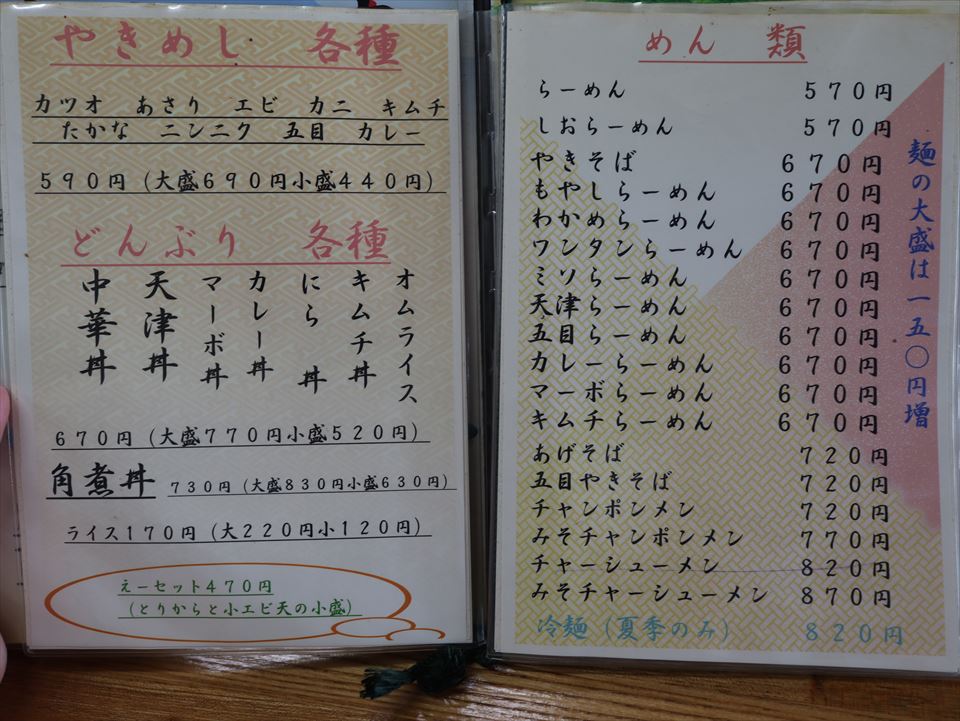 やきめし 各種
カツオ あさり エビ カニ キムチ
たかな ニンニク 五目 カレー
５９０円（大盛６９０円小盛４４０円）
どんぶり 各種
オムライス
キムチ丼
にら丼
カレー丼
マーボ丼
天津丼
中華丼
６７０円（大盛７７０円小盛５２０円）
角煮丼 ７３０円（大盛８３０円小盛６３０円）
ライス１７０円（大２２０円小１２０円）
えーセット４７０円
（とりからと小エビ天の小盛）
めん 類
らーめん ５７０円
しおらーめん ５７０円
やきそば ６７０円
もやしらーめん ６７０円
わかめらーめん ６７０円
ワンタンらーめん ６７０円
ミソらーめん ６７０円
天津らーめん ６７０円
五目らーめん ６７０円
カレーらーめん ６７０円
マーボらーめん ６７０円
キムチらーめん ６７０円
あげそば ７２０円
五目やきそば ７２０円
チャンポンメン ７２０円
みそチャンポンメン ７７０円
チャーシューメン ８２０円
みそチャーシューメン ８７０円
冷麺（夏季のみ） ８２０円
麺の大盛は一五〇円増